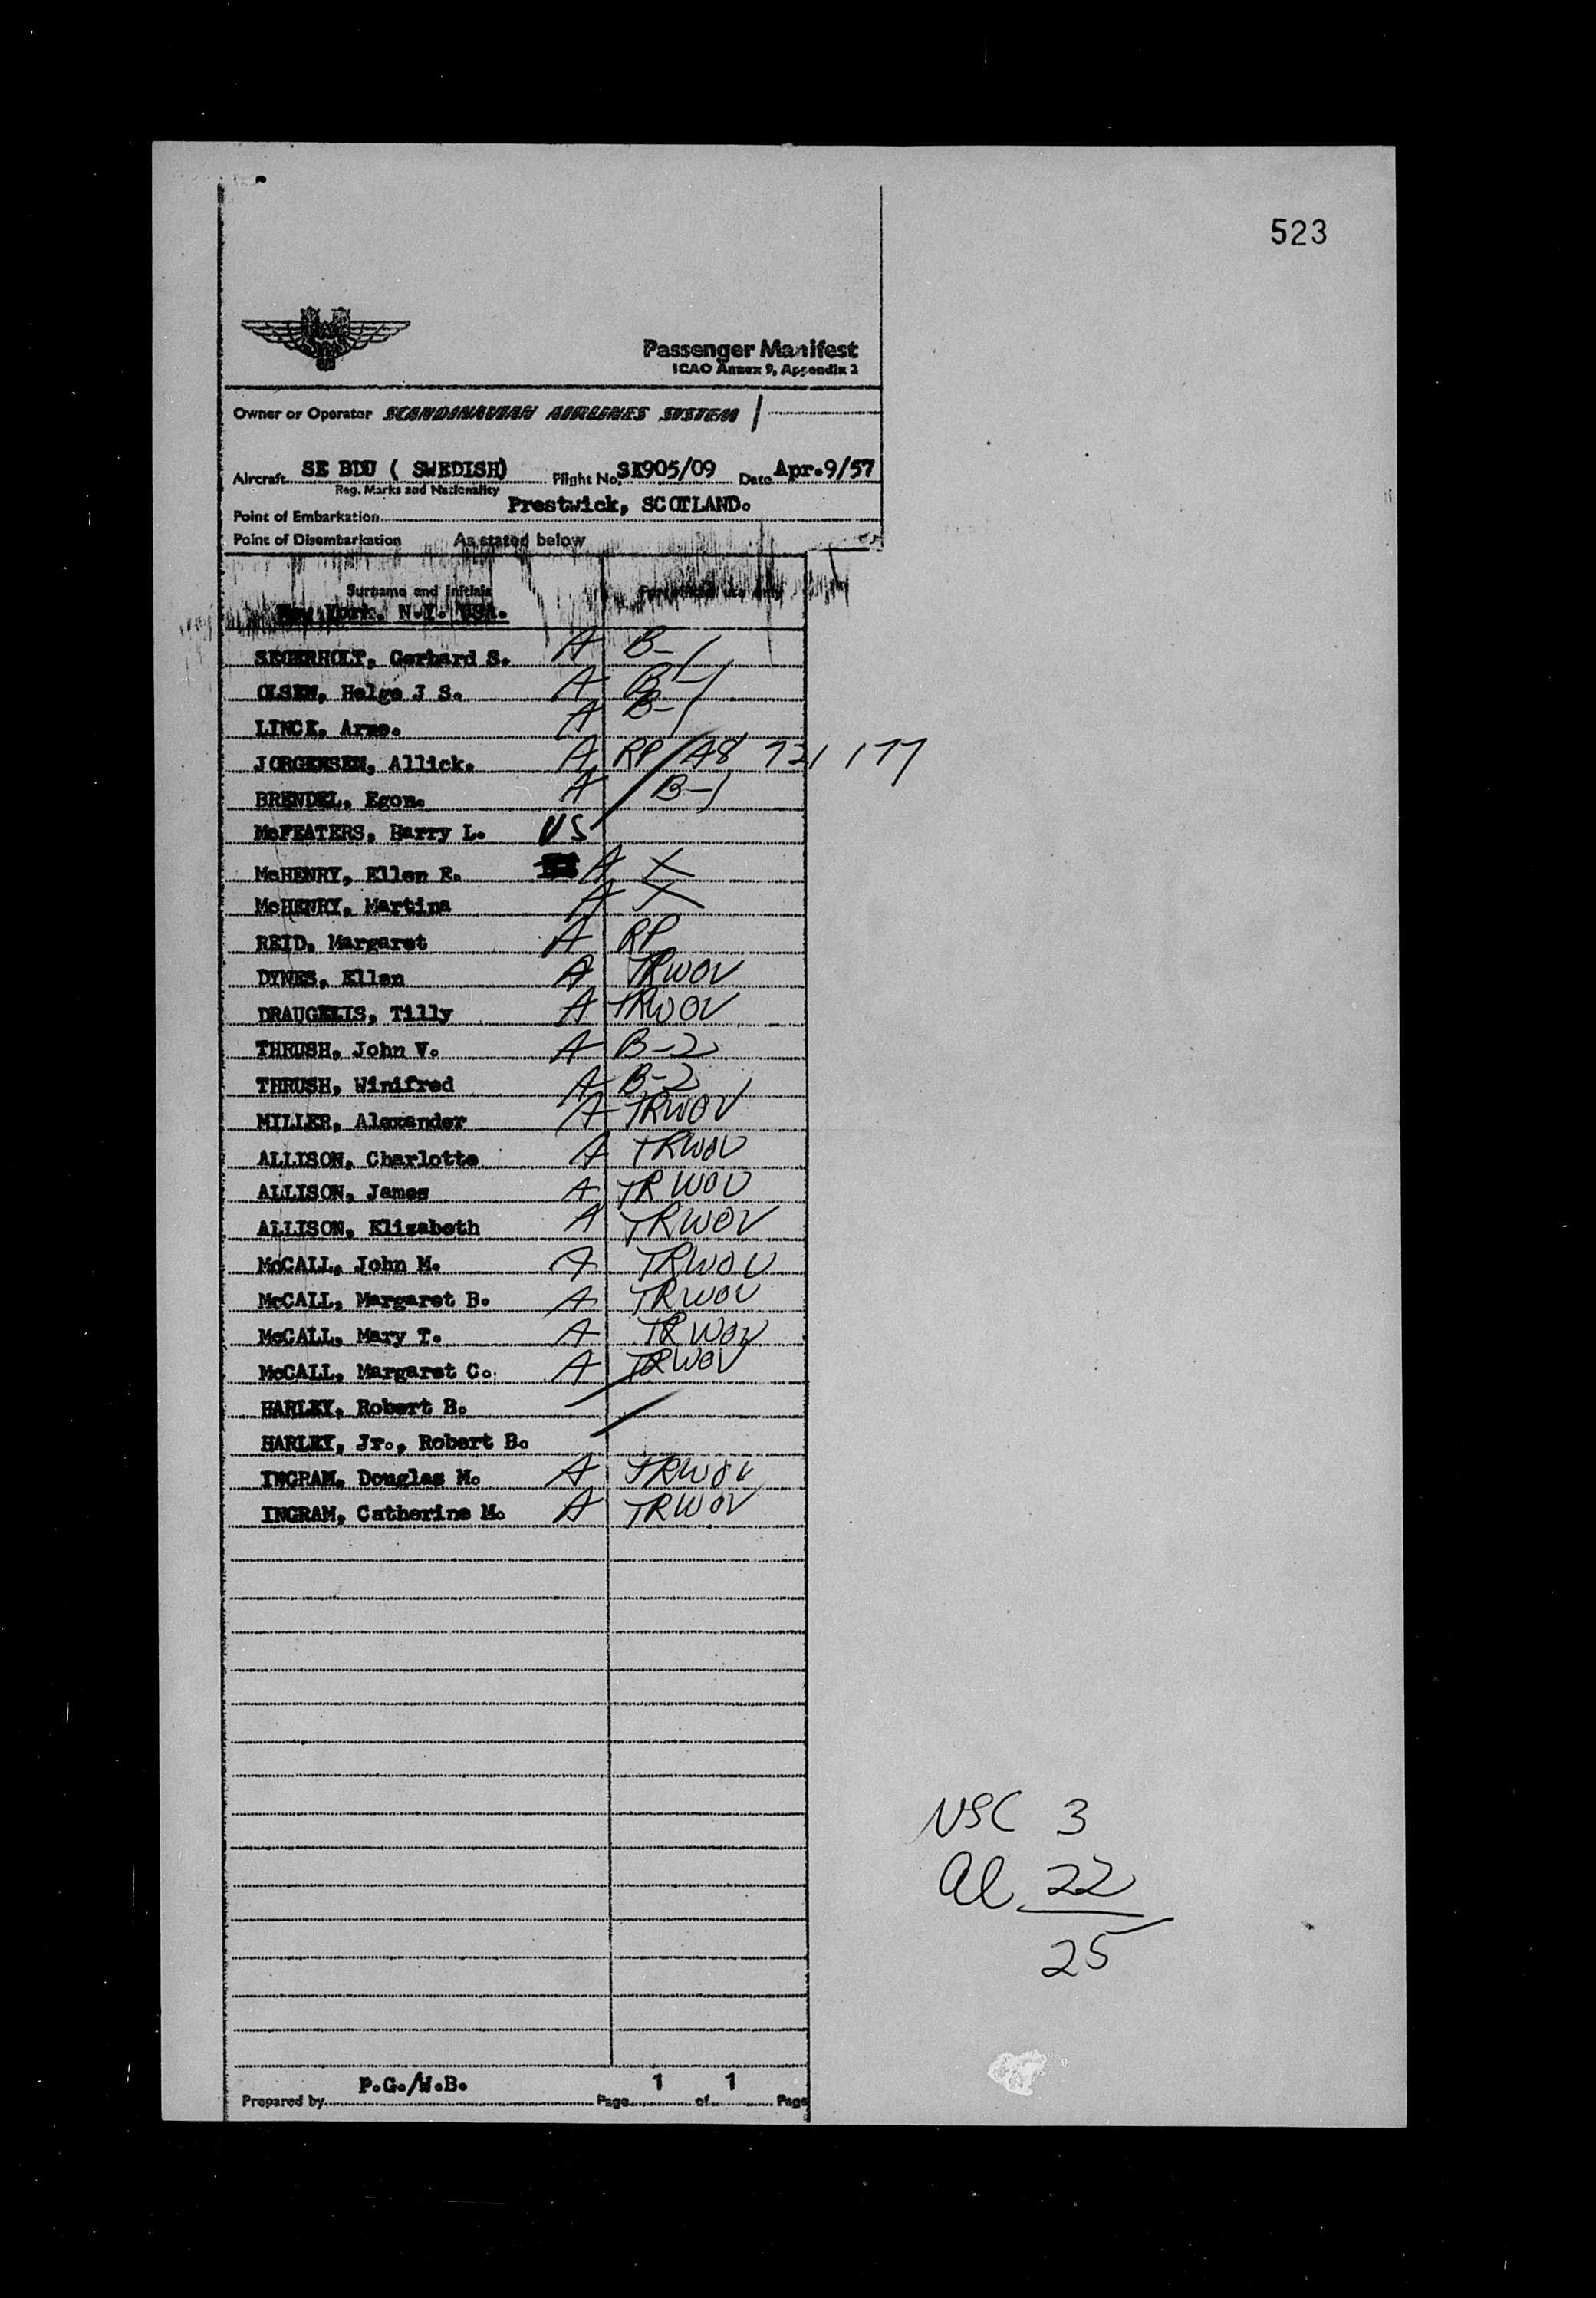 523
SAS
Passenger Manifest
ICAO Annex 9, Appendix 2
Owner or Operator SCANDINAVIAN AIRLINES SYSTEM
Aircraft SE BDU ( SWEDISH) Flight No. SK905/09 Date Apr.9/57
Reg. Marks and Nationality
Point of Embarkation Prestwick, SCOTLAND.
Point of Disembarkation As stated below
Surname and Initials For official use only
New York, N.Y. USA.
SEGERHOLT, Gerhard S. A B-1
OLSEN, Helge J S. A B-1
LINCK, Arne. A B-1
JORGENSEN, Allick. A RP A8 721 177
BRENDEL, Egon. A B-1
McFEATERS, Harry L. US
McHENRY, Ellen E. A X
McHENRY, Martina A X
REID, Margaret A RP
DYNES, Ellen A TRWOV
DRAUGELIS, Tilly A TRWOV
THRUSH, John V. A B-2
THRUSH, Winifred A B-2
MILLER, Alexander A TRWOV
ALLISON, Charlotte A TRWOV
ALLISON, James A TRWOV
ALLISON, Elizabeth A TRWOV
McCALL, John M. A TRWOV
McCALL, Margaret B. A TRWOV
McCALL, Mary T. A TRWOV
McCALL, Margaret C. A TRWOV
HARLEY, Robert B.
HARLEY, Jr., Robert B.
INGRAM, Douglas M. A TRWOV
INGRAM, Catherine M. A TRWOV
USC 3
Al 22
25
Prepared by P.G./W.B. Page 1 of 1 Page